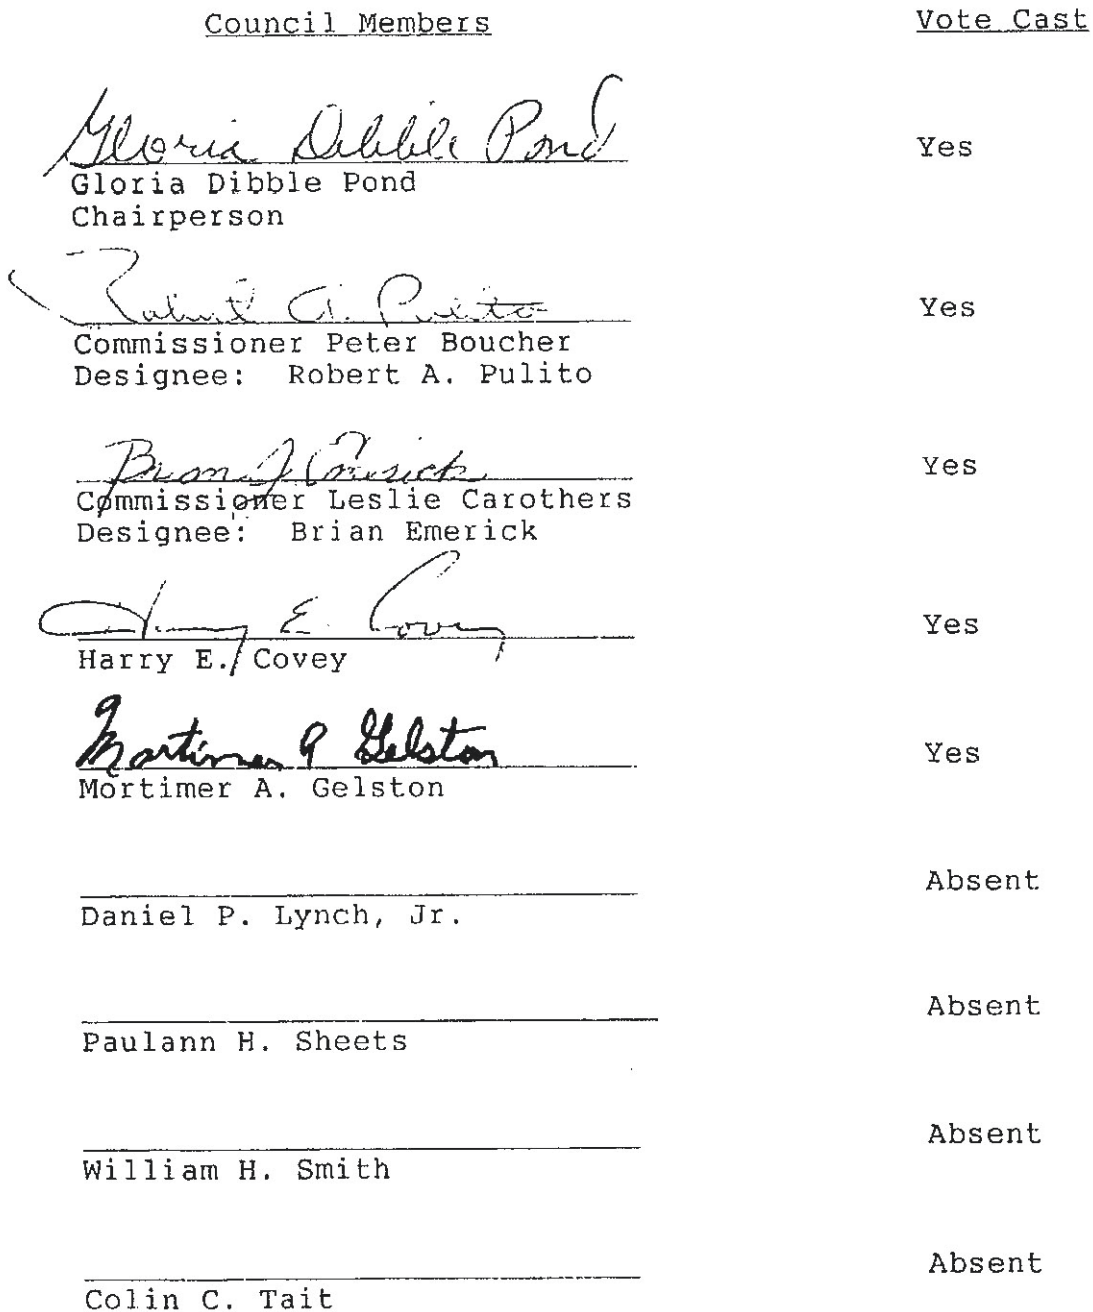 Council Members Vote Cast
Gloria Dibble Pond Yes
Gloria Dibble Pond
Chairperson
Robert A. Pulito Yes
Commissioner Peter Boucher
Designee: Robert A. Pulito
Brian J Emerick Yes
Commissioner Leslie Carothers
Designee: Brian Emerick
Harry E. Covey Yes
Harry E. Covey
Mortimer A Gelston Yes
Mortimer A. Gelston
Absent
Daniel P. Lynch, Jr.
Absent
Paulann H. Sheets
Absent
William H. Smith
Absent
Colin C. Tait